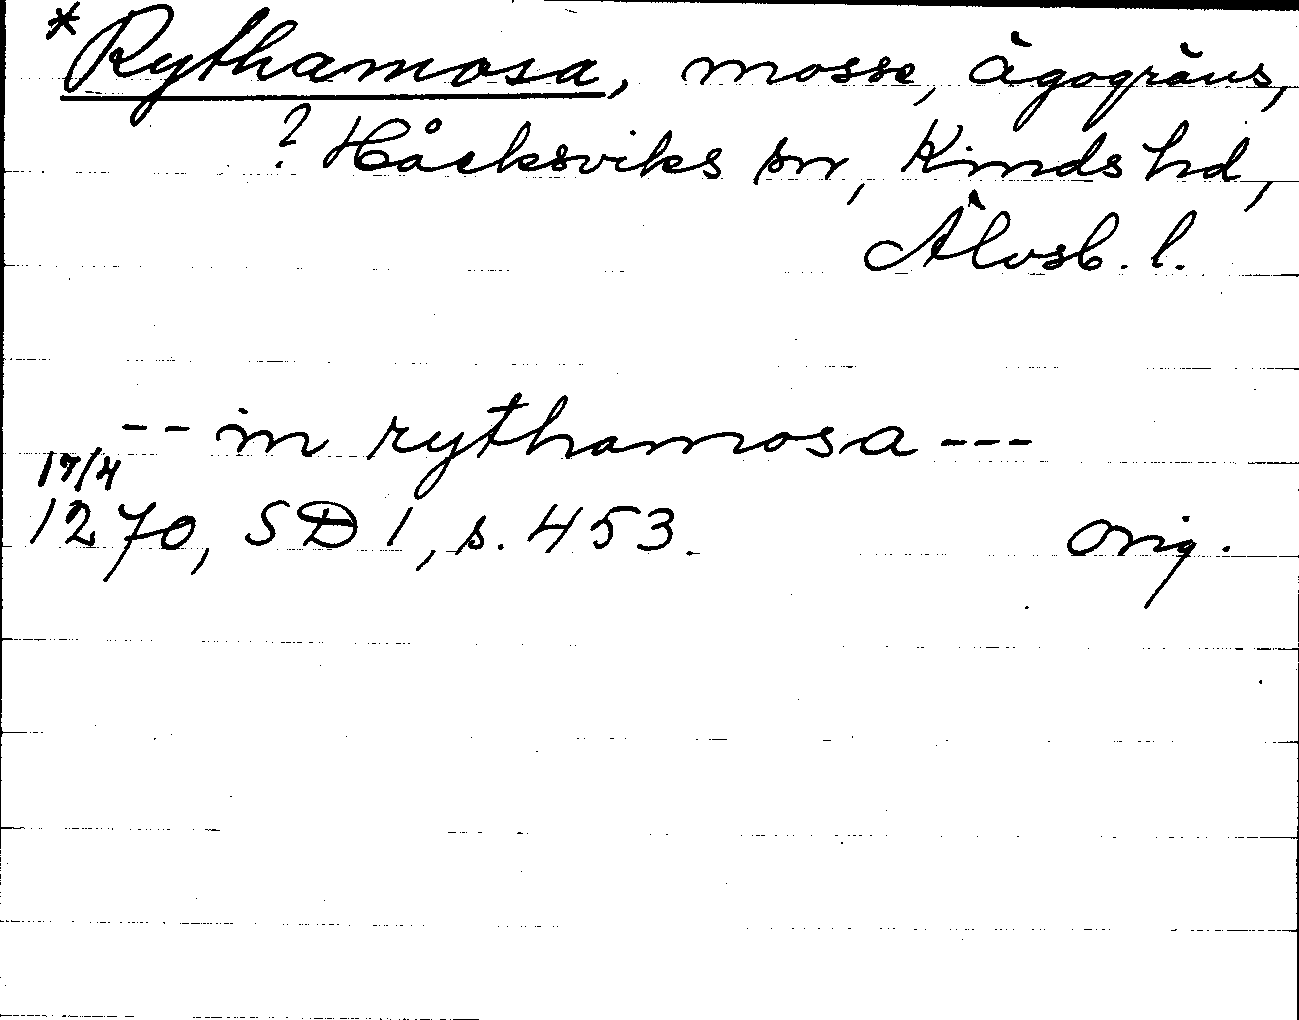 *Rythamosa, mosse, ägogräns,
? Håcksviks sn, Kinds hd,
Älvsb. l.
-- in rythamosa ---
17/4
1270, SD 1, s. 453. orig.